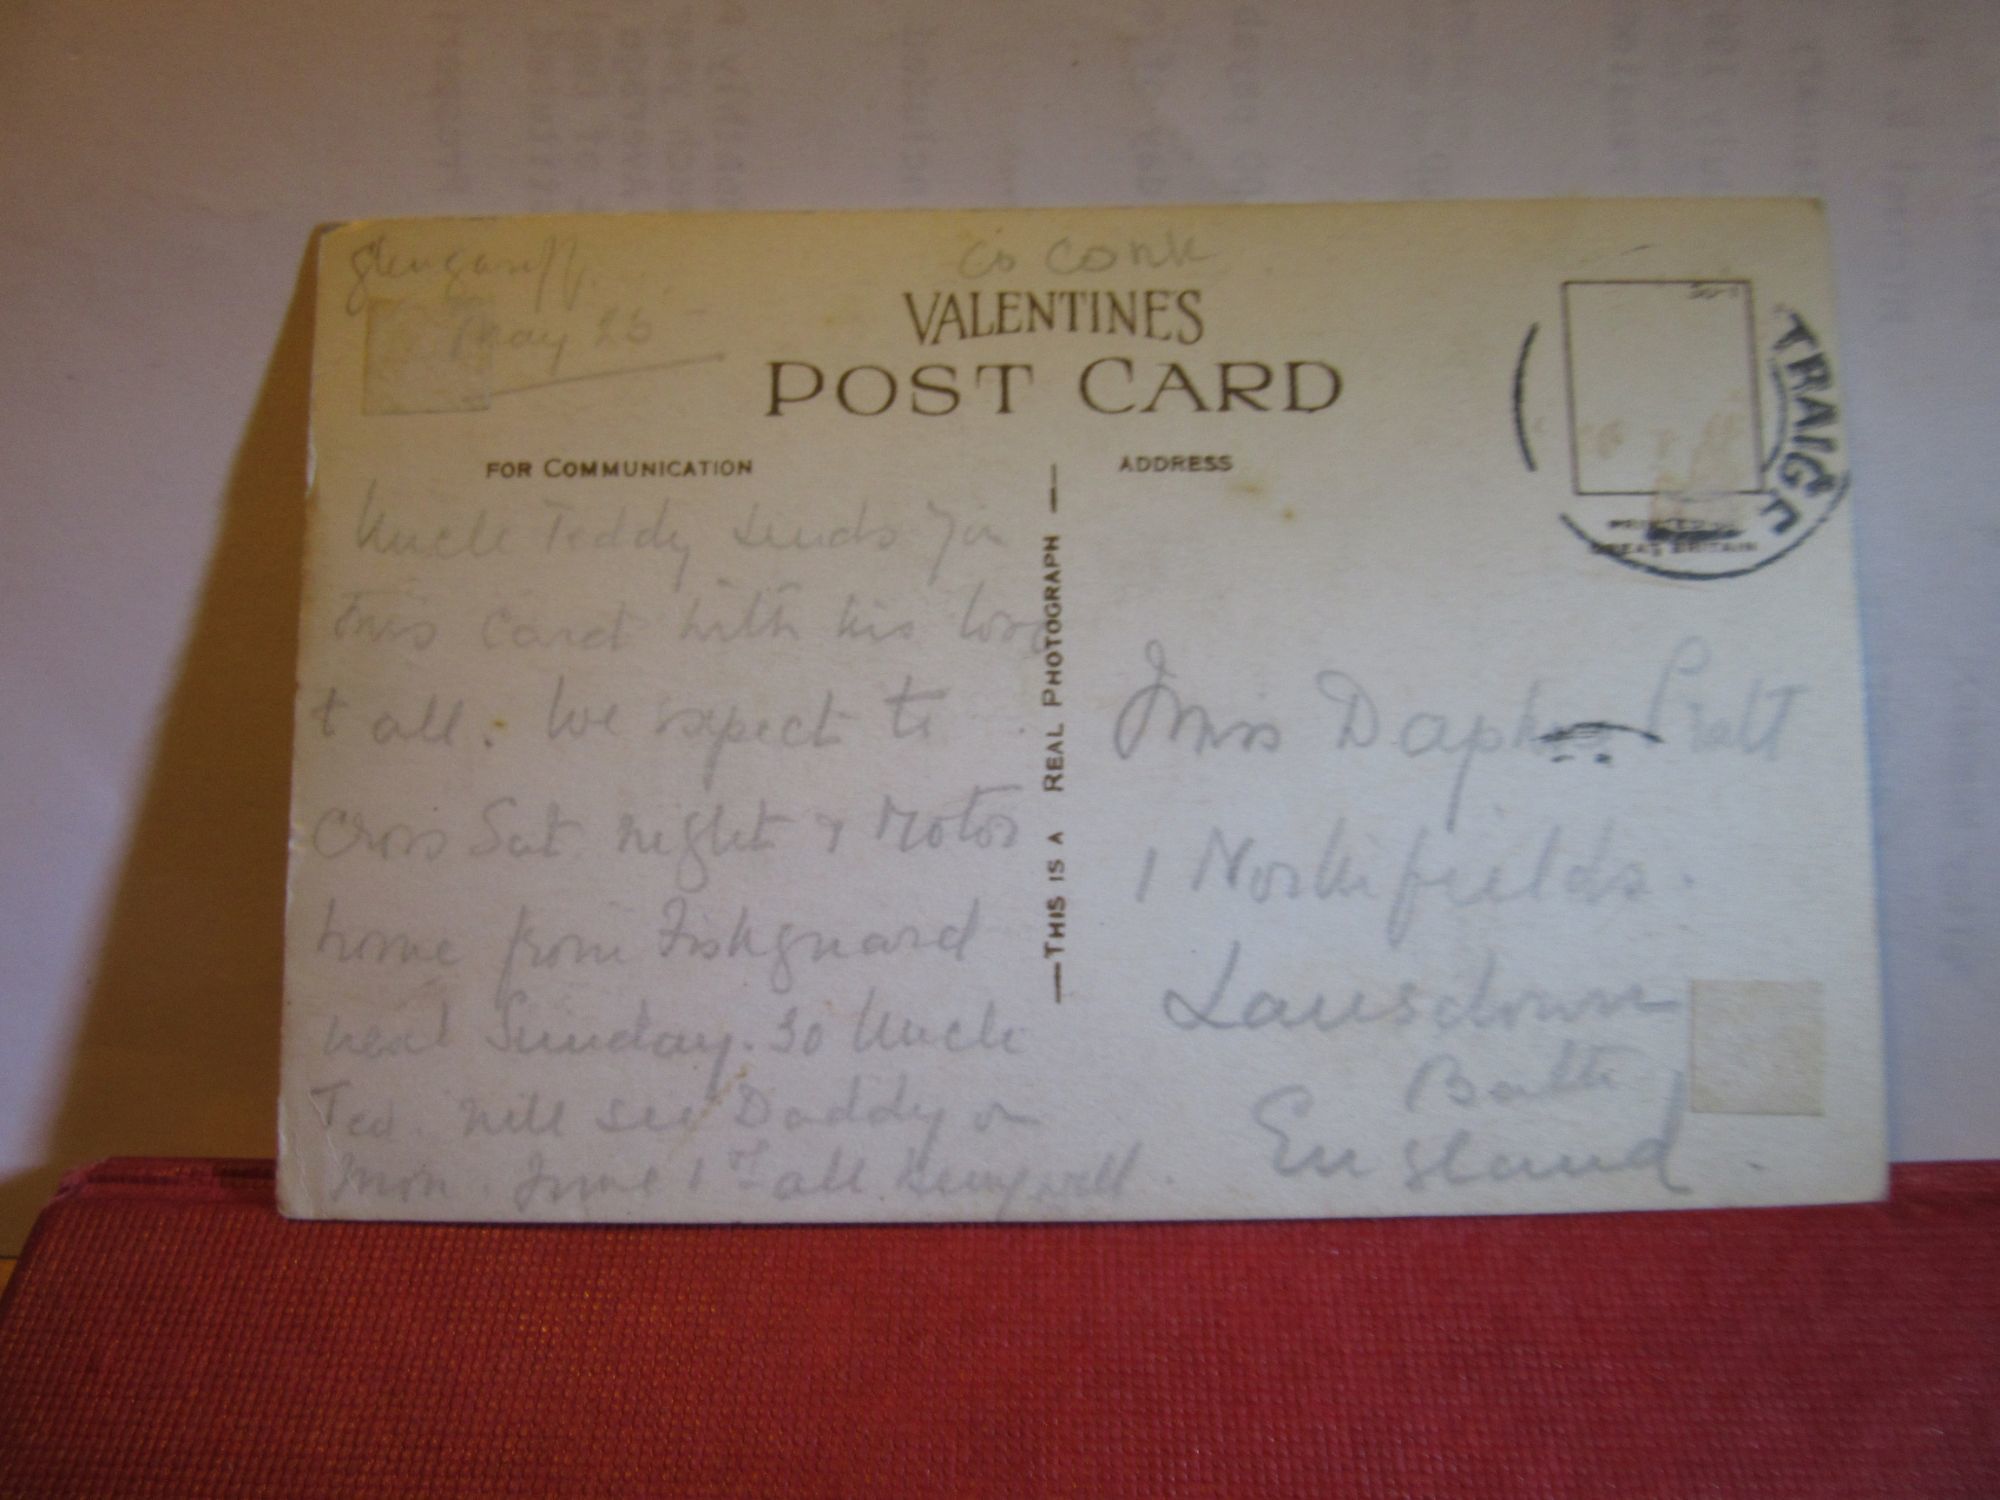 Glengariff.
Co Cork
May 26
VALENTINES
POST CARD
FOR COMMUNICATION
Uncle Teddy sends you
this card with his love
t all. We expect to
cross Sat night & Motor
home from Fishguard
next Sunday. So Uncle
Ted. will see Daddy on
Mon. June 1st all being well.
THIS IS A REAL PHOTOGRAPH
ADDRESS
PRINTED IN
GREAT BRITAIN
Miss Daphne Pratt
1 Northfields.
Lansdown
Bath
England.